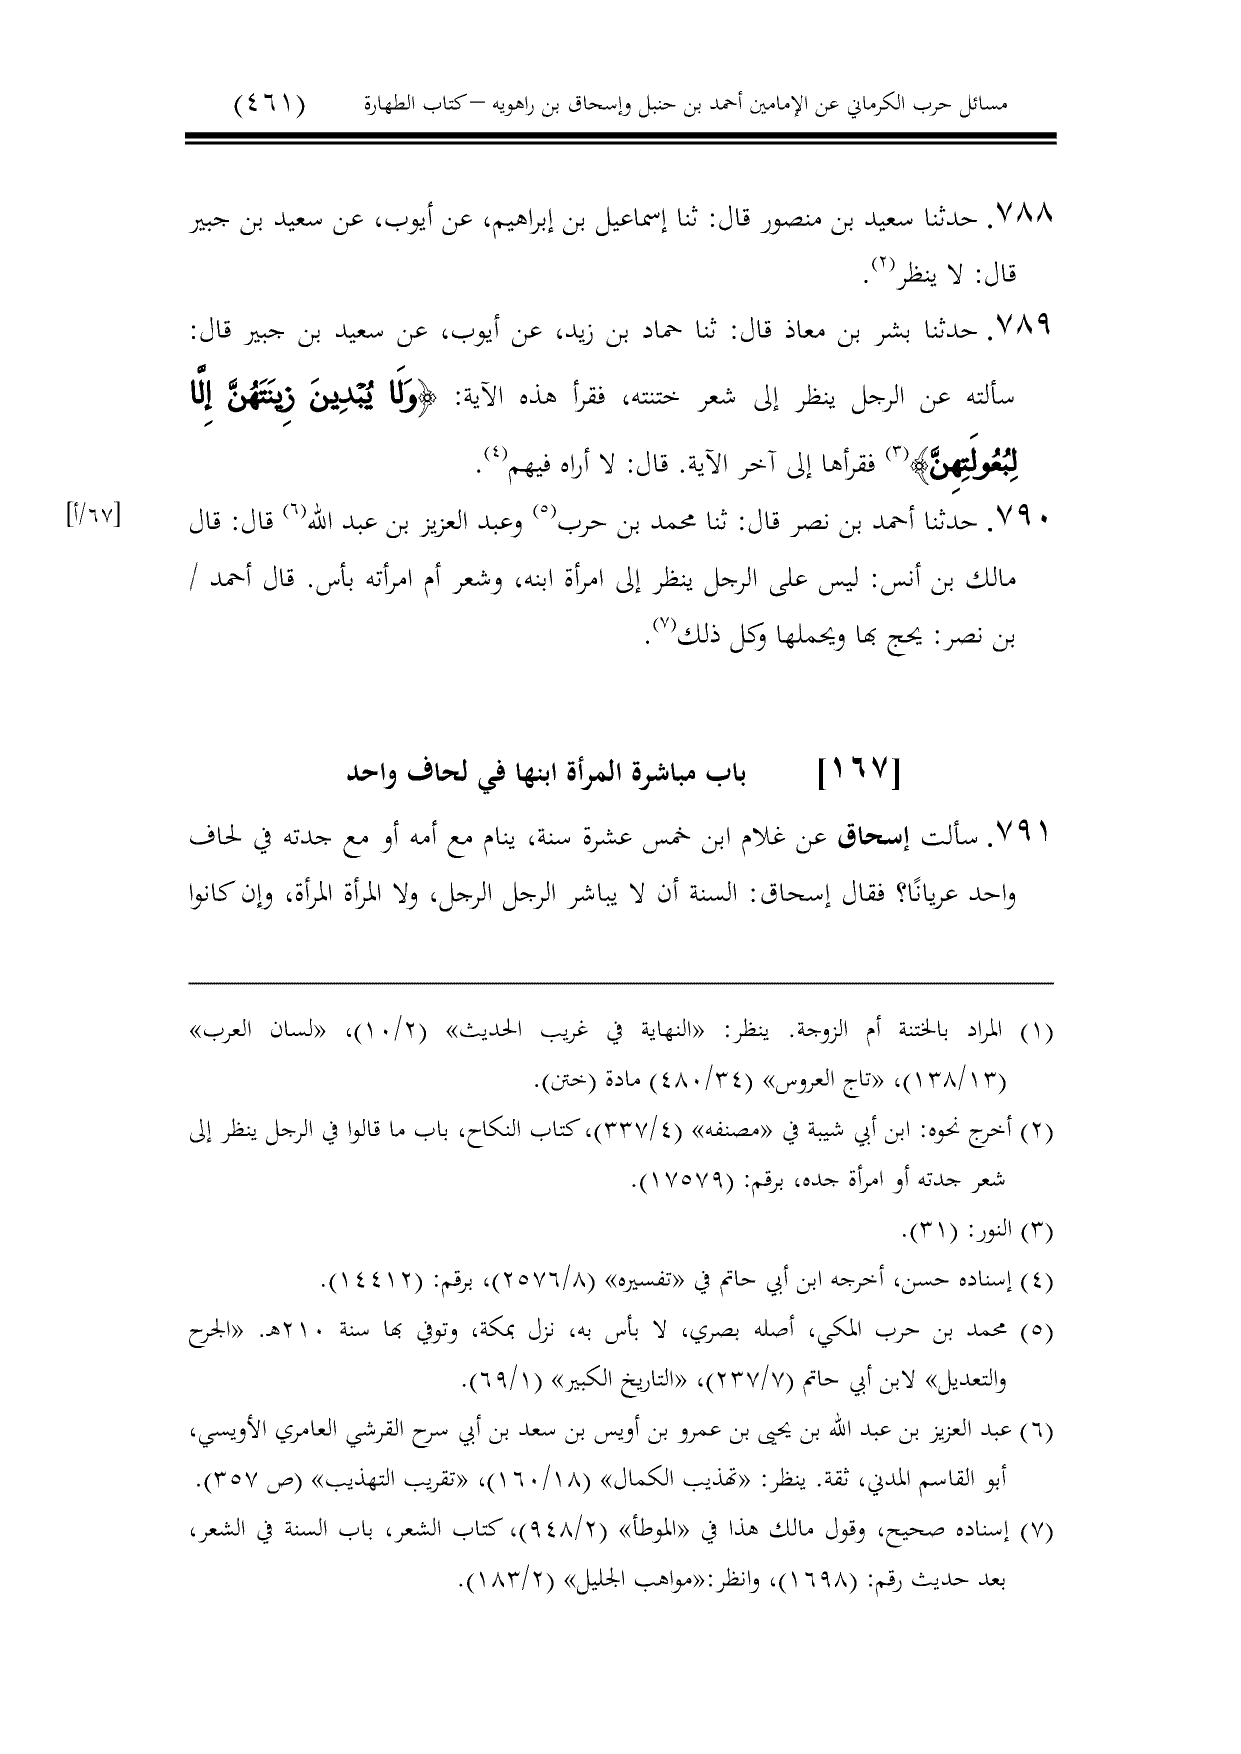 مسائل حرب الكرماني عن الإمامين أحمد بن حنبل وإسحاق بن راهويه – كتاب الطهارة (٤٦١)
٧٨٨. حدثنا سعيد بن منصور قال: ثنا إسماعيل بن إبراهيم، عن أيوب، عن سعيد بن جبير
قال: لا ينظر(٢).
٧٨٩. حدثنا بشر بن معاذ قال: ثنا حماد بن زيد، عن أيوب، عن سعيد بن جبير قال:
سألته عن الرجل ينظر إلى شعر ختنته، فقرأ هذه الآية: ﴿وَلَا يُبْدِينَ زِينَتَهُنَّ إِلَّا
لِبُعُولَتِهِنَّ﴾(٣) فقرأها إلى آخر الآية. قال: لا أراه فيهم(٤).
٧٩٠. حدثنا أحمد بن نصر قال: ثنا محمد بن حرب(٥) وعبد العزيز بن عبد الله(٦) قال: قال
[٦٧/أ]
مالك بن أنس: ليس على الرجل ينظر إلى امرأة ابنه، وشعر أم امرأته بأس. قال أحمد /
بن نصر: يحج بها ويحملها وكل ذلك(٧).
[١٦٧] باب مباشرة المرأة ابنها في لحاف واحد
٧٩١. سألت إسحاق عن غلام ابن خمس عشرة سنة، ينام مع أمه أو مع جدته في لحاف
واحد عريانًا؟ فقال إسحاق: السنة أن لا يباشر الرجل الرجل، ولا المرأة المرأة، وإن كانوا
(١) المراد بالختنة أم الزوجة. ينظر: «النهاية في غريب الحديث» (١٠/٢)، «لسان العرب»
(١٣٨/١٣)، «تاج العروس» (٤٨٠/٣٤) مادة (ختن).
(٢) أخرج نحوه: ابن أبي شيبة في «مصنفه» (٣٣٧/٤)، كتاب النكاح، باب ما قالوا في الرجل ينظر إلى
شعر جدته أو امرأة جده، برقم: (١٧٥٧٩).
(٣) النور: (٣١).
(٤) إسناده حسن، أخرجه ابن أبي حاتم في «تفسيره» (٢٥٧٦/٨)، برقم: (١٤٤١٢).
(٥) محمد بن حرب المكي، أصله بصري، لا بأس به، نزل بمكة، وتوفي بها سنة ٢١٠هـ. «الجرح
والتعديل» لابن أبي حاتم (٢٣٧/٧)، «التاريخ الكبير» (٦٩/١).
(٦) عبد العزيز بن عبد الله بن يحيى بن عمرو بن أويس بن سعد بن أبي سرح القرشي العامري الأويسي،
أبو القاسم المدني، ثقة. ينظر: «تهذيب الكمال» (١٦٠/١٨)، «تقريب التهذيب» (ص ٣٥٧).
(٧) إسناده صحيح، وقول مالك هذا في «الموطأ» (٩٤٨/٢)، كتاب الشعر، باب السنة في الشعر،
بعد حديث رقم: (١٦٩٨)، وانظر:«مواهب الجليل» (١٨٣/٢).